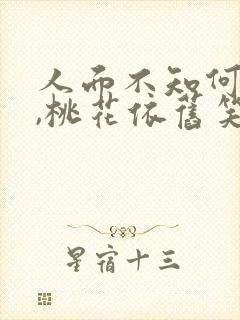 人而不知何
,桃花依舊笑
星宿十三